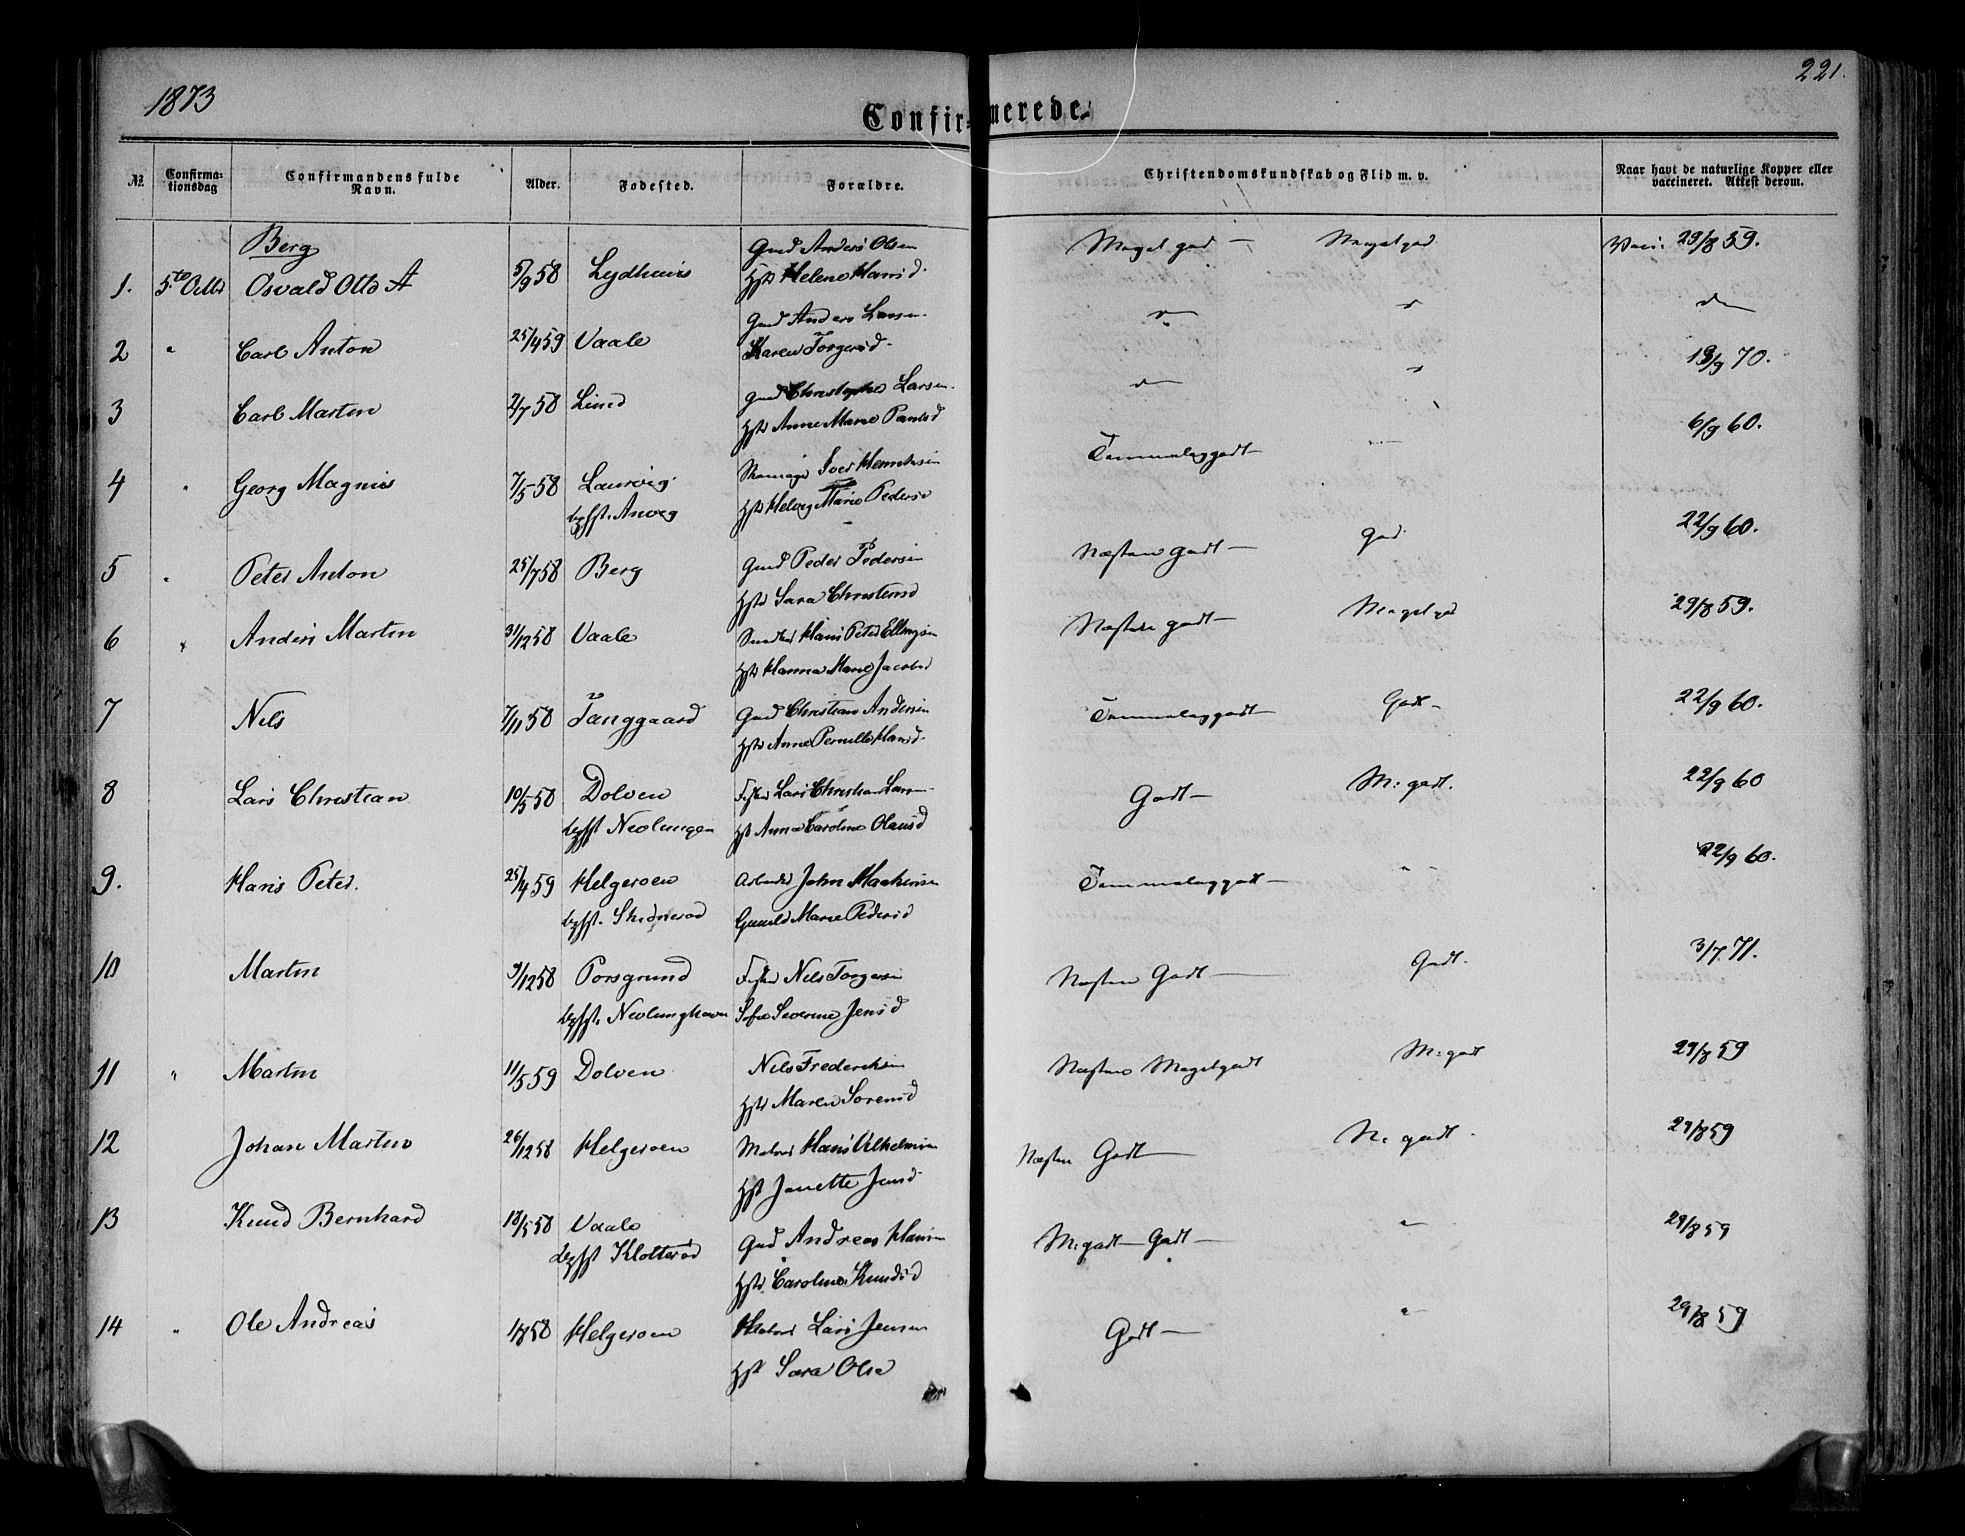 1873
221.
Confirmerede.
№
Confirmationsdag
Confirmandens fulde Navn.
Alder.
Fødested.
Forældre.
Christendomskundskab og Flid m. v.
Naar havt de naturlige Kopper eller vaccineret. Attest derom.
Berg
Gmd Anders Olsen
1. 5te Octb Osvald Otto A 5/9 58 Lydhuus Hstr Helene Hansd. Meget god — Meget god Vacc. 29/8 59.
Gmd Anders Larsen
2 " Carl Anton 25/4 59 Vaale Karen Torgersd. 19/9 70.
Gmd Christopher Larsen
3 Carl Martin 2/7 58 Lund Hstr Anne Marie Paulsd 6/9 60.
4 " Georg Magnus 7/5 58 Laurvig Iver Henriksen Temmelig godt
bgsft. Anveg Hstr Helveg Marie Peders 22/9 60.
5 " Peter Anton 25/7 58 Berg Gmd Peder Pedersen Næsten godt — God
Hstr Sara Christensd
6 " Anders Martin 31/12 58 Vaale Hans Peter Ellingsen Næsten godt — Meget god 29/8 59.
Hstr Hanna Marie Jacobsd
7 Nils 7/11 58 Tanggaard Gmd Christian Andersen Temmelig godt Godt — 22/9 60.
Hstr Anne Pernille Hansd.
8 Lars Christian 10/5 58 Dolven Lars Christian Larsen Godt — M: godt. 22/9 60
bgsft Nevlungen Hst Anne Caroline Olausd
9. Hans Peter. 25/4 59 Helgeroen Arbeider John Mathisen Temmelig godt — " 22/9 60.
bgsft. Skidnerød Gunild Marie Pedersd
10 Martin 9/12 58 Porsgrund Nils Torgersen Næsten Godt — Godt. 3/7 71.
bgsft. Nevlunghavn Sofie Severine Jensd
11 " Martin 11/5 59 Dolven Nils Frederiksen Næsten Meget godt M: godt 29/8 59
Hstr Maren Sørensd
12 Johan Martin 26/12 58 Helgeroen Matros Hans Vilhelmsen Næsten Godt — M: godt. 29/8 59
Hst Janette Jensd
13 Knud Bernhard 18/5 58 Vaale Gmd Andreas Hansen M: godt — Godt — " 29/8 59
bgsft Klotterød Hstr Caroline Knudsd
14 " Ole Andreas 1/8 58 Helgeroen Matros Lars Jensen Godt — " 29/8 59
Hst Sara Olse